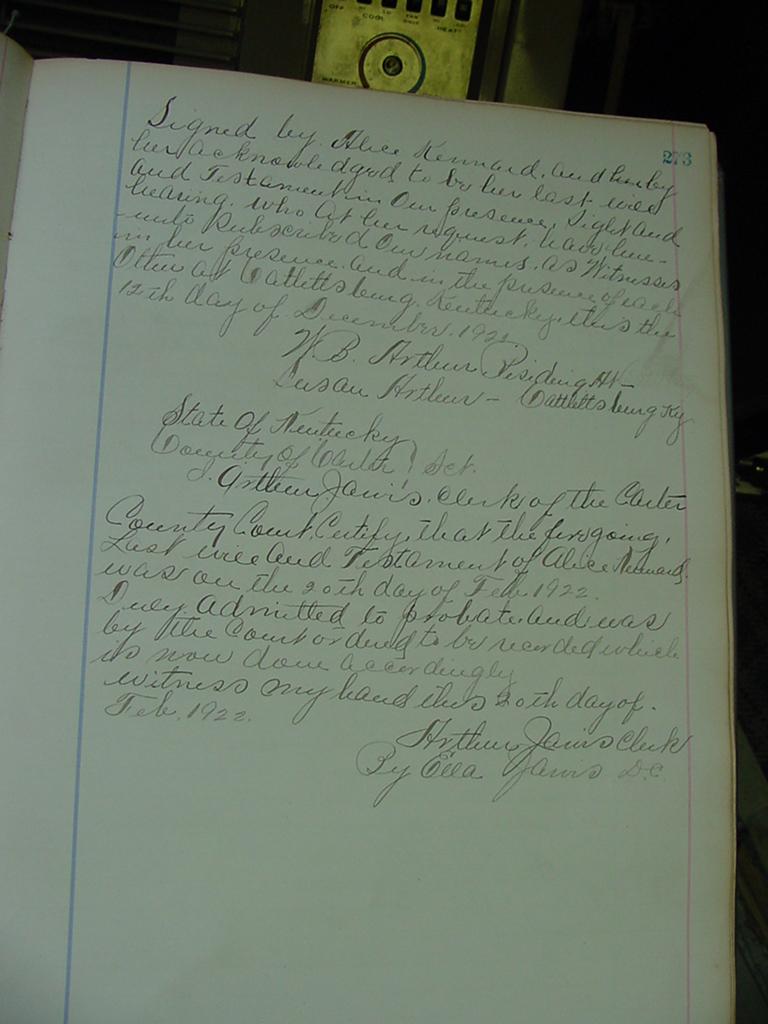 OFF LO COOL FAN ONLY HI HEAT
WARMER
273
Signed by Alice Kennard, and by
her acknowledged to be her last will
and Testament in Our presence, Sight and
hearing. who at her request, have here-
-unto Subscribed Our names, as Witnesses
in her presence. and in the presence of each
Other at Catlettsburg, Kentucky, this the
12th day of December. 1921
W. B. Arthur Residing At-
Susan Arthur - Catlettsburg Ky
State Of Kentucky
County of Carter } Sct.
I. Arthur Jarvis. Clerk of the Carter
County Court. Certify, that the foregoing,
Last will And Testament of Alice Kennard.
was on the 20th day of Feb. 1922.
Duly admitted to probate and was
by the Court ordered to be recorded which
is now done accordingly
witness my hand this 20th day of.
Feb. 1922.
Arthur Jarvis Clerk
By Ella Jarvis D.C.